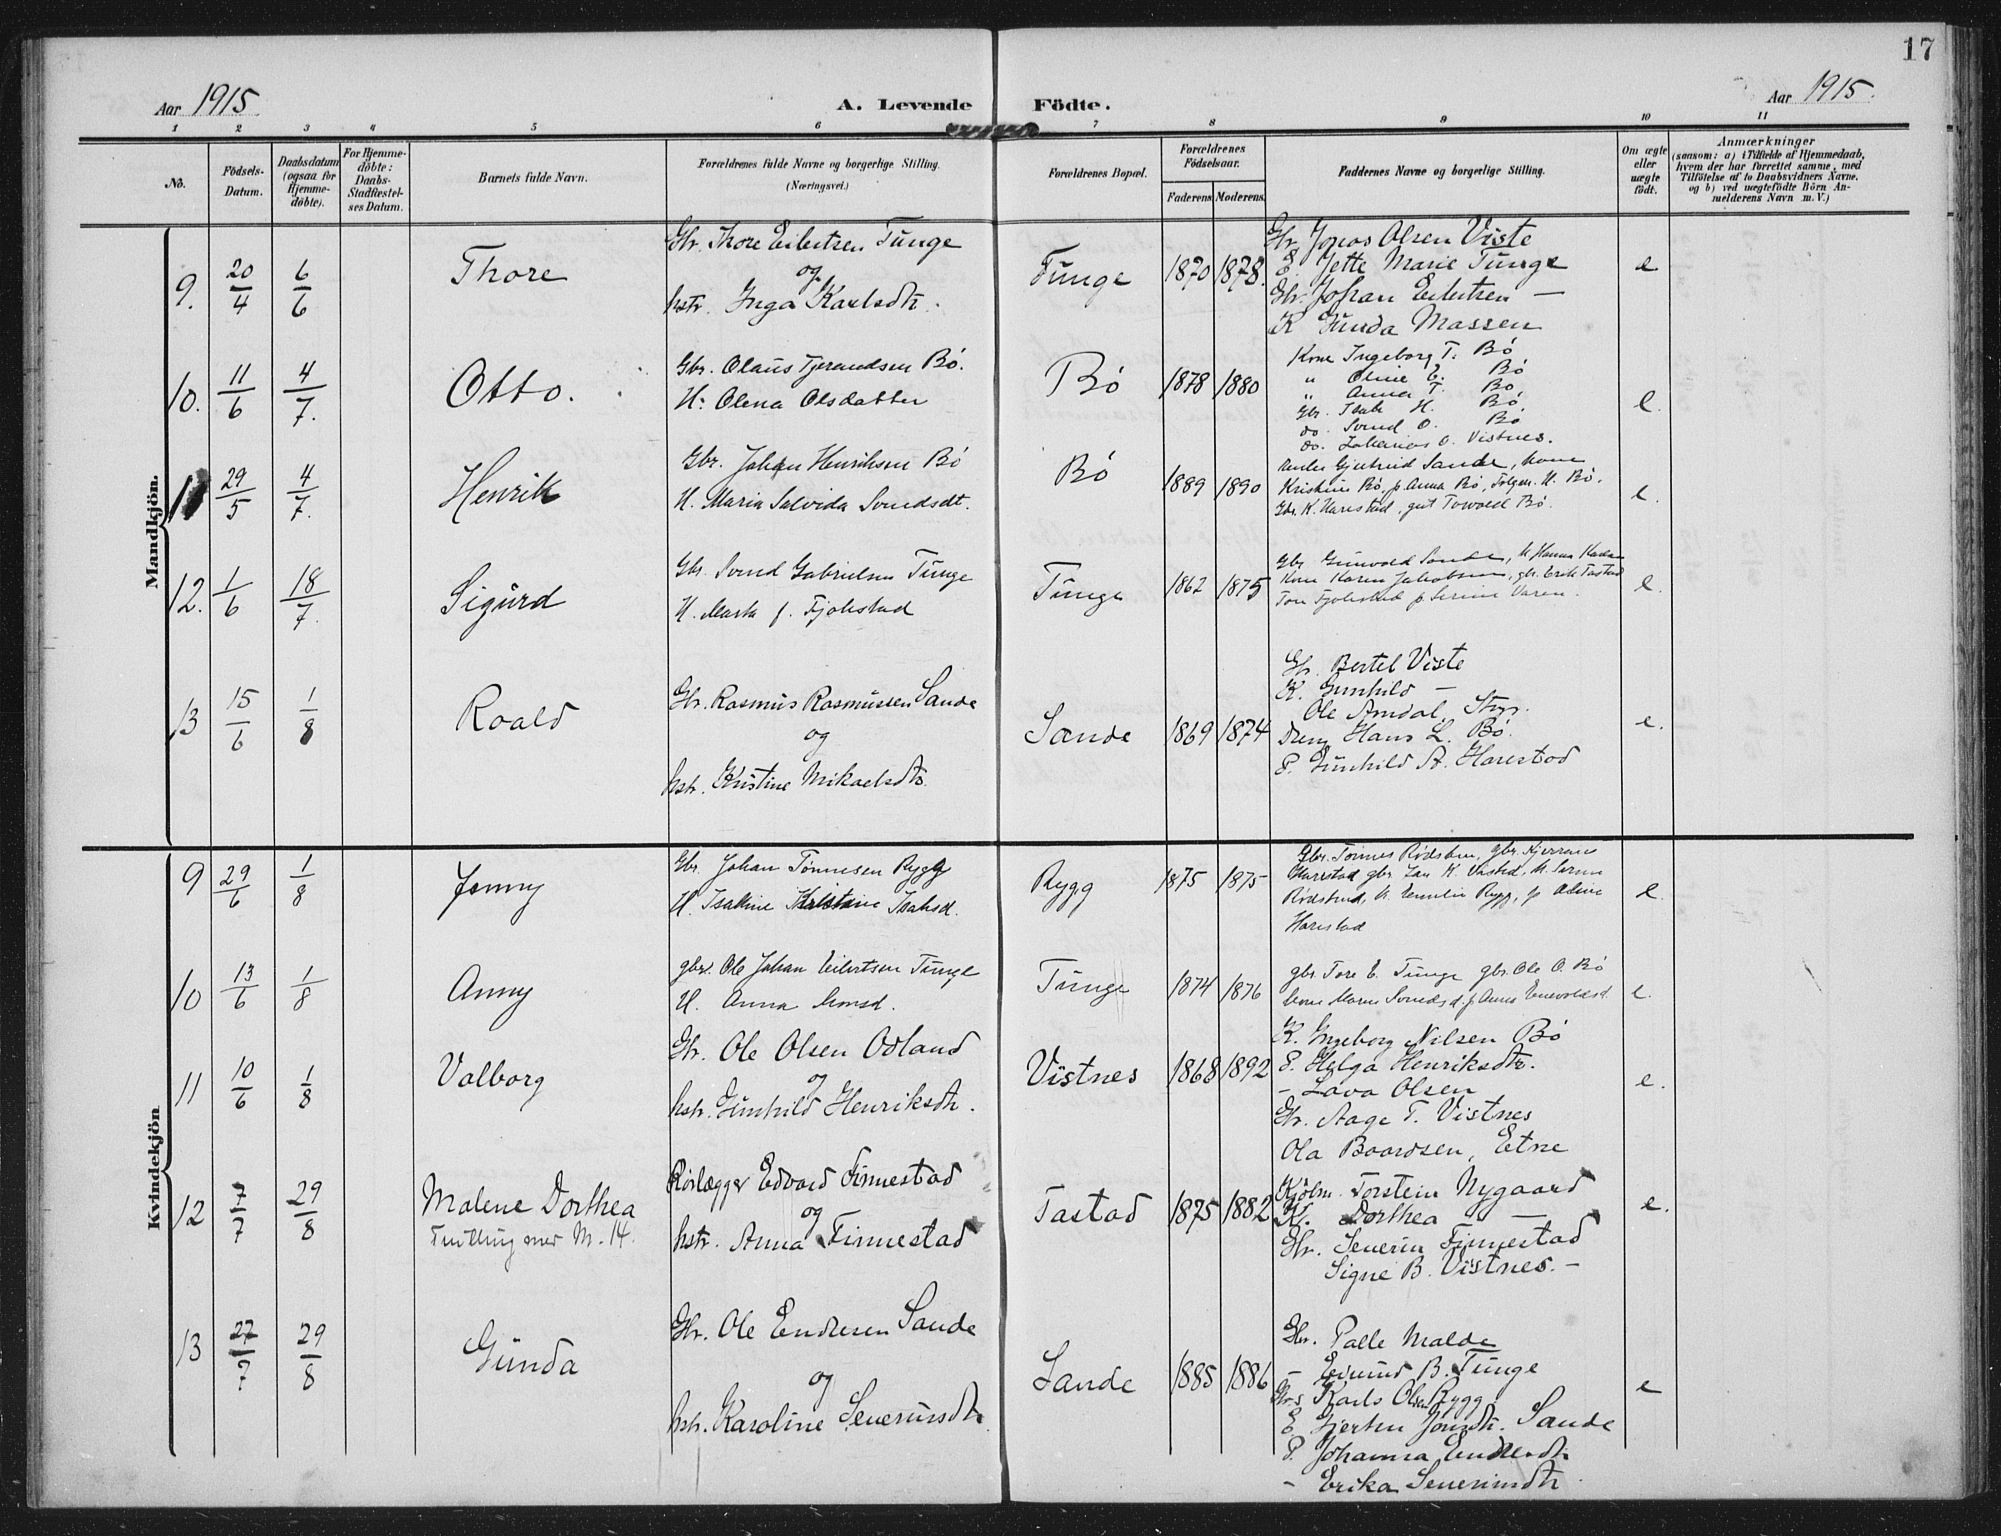 17
Aar 1915.
A. Levende Födte.
Aar 1915.
1 2 3 4 5 6 7 8 9 10 11
No.
Födsels-
Datum.
Daabsdatum
(ogsaa for
Hjemme-
döbte).
For Hjemme-
döbte:
Daabs-
Stadfæstel-
ses Datum.
Barnets fulde Navn.
Forældrenes fulde Navne og borgerlige Stilling.
(Næringsvei.)
Forældrenes Bopæl.
Forældrenes
Födselsaar.
Faderens Moderens.
Faddernes Navne og borgerlige Stilling.
Om ægte
eller
uægte
födt.
Anmærkninger
(saasom: a) i Tilfælde af Hjemmedaab,
hvem der har forrettet samme, med
Tilföielse af to Daabsvidners Navne,
og b) ved uægtefödte Börn An-
melderens Navn m. V.)
Mandkjön.
9. 20/4 6/6 Thore
Gbr. Thore Eilertsen Tunge
og
hstr. Inga Karlsdtr.
Tunge 1870 1878.
Gbr. Jonas Olsen Viste
E. Jette Marie Tunge
Gbr. Johan Eilertsen —
K. Gunda Massen
e
10. 11/6 4/7. Otto.
Gbr. Olaus Tjerandsen Bö.
H. Olena Olsdatter
Bö 1878 1880
Kone Ingeborg T. Bö
" Oline E. Bö
" Anna T. Bö
Gbr. Isak H. Bö
do. Svend O. Bö.
do. O. Vistnes.
e.
11 29/5 4/7. Henrik
Gbr. Johan Henriksen Bö
H. Maria Salvida Svendsdt.
Bö 1889 1890
Sande, kone
Kristine Bö, p. Anna Bö, H. Bö.
Gbr. K. Harestad, gut Torvald Bö.
e.
12. 1/6 18/7. Sigurd
Gbr. Svend Gabrielsen Tunge
H. Marta f. Fjolestad
Tunge 1862 1875
Gbr. Gunvald Sande, K. Hanna
Kone Karen Jakobsen, gbr. Erik Tastad
Tore Fjolestad p.
e.
13 15/6 1/8 Roald
Gbr. Rasmus Rasmussen Sande
og
hstr. Kristine Mikaelsdtr.
Sande 1869 1874
Gbr. Bertel Viste
K. Gunhild —
Ole Arndal, Styr.
Dreng Hans L. Bö.
P. Gunhild A. Harestad
e.
Kvindekjön
9 29/6 1/8 Jenny
Gbr. Johan Tönnesen Rygg
H. Isakine Kristine Isaksd.
Rygg 1875 1875
Gbr. Tönnes Rödstun, gbr.
Harestad gbr. K. Vistad, K.
Rödstun, K. Rygg, p.
Harestad
e.
10 13/6 1/8 Anny
gbr. Ole Johan Eilertsen Tunge
H. Anna Monsd.
Tunge 1874 1876
gbr Tore E. Tunge gbr. Ole O. Bö
kone Maren Svendsd. p. Anna Enevoldsd.
e.
11 10/6 1/8 Valborg
Gbr. Ole Olsen Odland
og
hstr. Gunhild Henriksdtr.
Vistnes 1868 1892
K. Ingeborg Nilsen Bö
P. Helga Henriksdtr.
— Lava Olsen
Gbr. Aage T. Vistnes
Ola Baardsen, Etne
e.
12 7/7 29/8 Malene Dorthea
Tvilling med M. 14.
Rörlægger Edvard Finnestad
og
hstr. Anna Finnestad
Tastad 1875 1882
Kjölm. Torstein Nygaard
K. Dorthea —
Gbr. Severin Finnestad
Signe B. Vistnes. —
e.
13 27/7 29/8 Gunda
Gbr. Ole Endresen Sande
og
hstr. Karoline Severinsdtr.
Sande 1885 1886
Gbr. Palle Malde
— Edvind B. Tunge
Gbr. Karls Olsen Rygg
E. Gjertru Jonsdtr. Sande
P. Johanna Endresdtr.
— Erika Severinsdtr
e